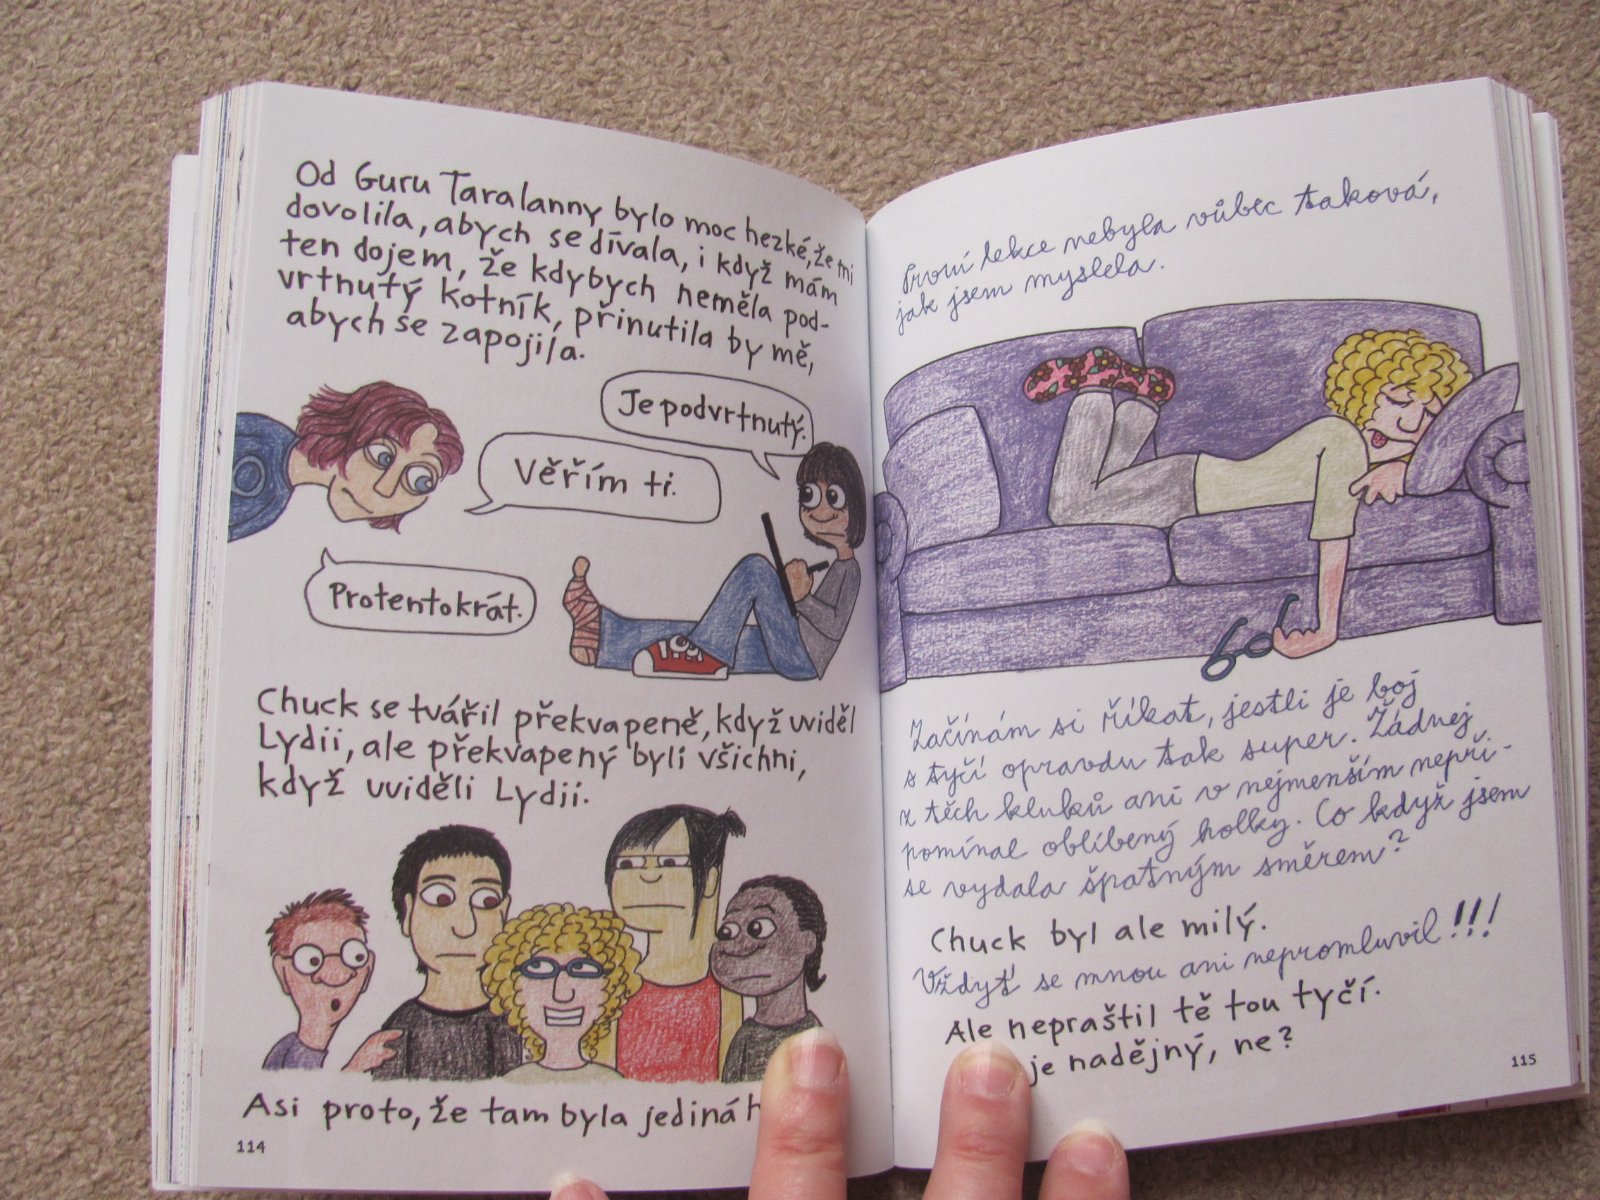 Od Guru Taralanny bylo moc hezké, že mi
dovolila, abych se dívala, i když mám
ten dojem, že kdybych neměla pod-
vrtnutý kotník, přinutila by mě,
abych se zapojila.
Je podvrtnutý.
Věřím ti.
Protentokrát.
Chuck se tvářil překvapeně, když uviděl
Lydii, ale překvapený byli všichni,
když uviděli Lydii.
Asi proto, že tam byla jediná
114
První lekce nebyla vůbec taková,
jak jsem myslela.
Začínám si říkat, jestli je boj
s tyčí opravdu tak super. Žádnej
z těch kluků ani v nejmenším nepři-
pomínal oblíbený holky. Co když jsem
se vydala špatným směrem?
Chuck byl ale milý.
Vždyť se mnou ani nepromluvil!!!
Ale nepraštil tě tou tyčí.
je nadějný, ne?
115